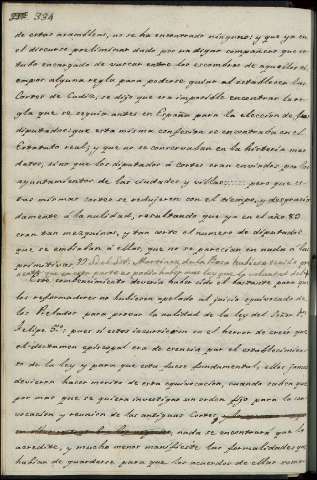 334
de estas asambleas, no se ha encontrado ninguno: y que ya en
el discurso preliminar dado por un digno compañero que es-
tubo encargado de buscar entre los escombros de aquellos
alguna regla para poderse guiar al establecer las
Cortes de Cadiz, se dijo que era imposible encontrar la re-
gla que se seguia antes en España para la eleccion de los
diputados: que esta misma confesion se encontraba en el
Estatuto real; y que no se conservaban en la historia mas
datos, sino que los diputados á cortes eran enviados por los
ayuntamientos de las ciudades y villas; pero que es-
tas mismas cortes se redujeron con el tiempo, y desgracia-
damente á la nulidad, resultando que ya en el año 80
eran tan mezquinas, y tan corto el numero de diputados
que se embiaban á ellas, que no se parecian en nada á las
primitivas. Si el Sr. Martinez de la Rosa hubiera tenido
que en esta parte no podia haber mas ley que la voluntad del
Este convencimiento deveria haber sido el bastante para que
los reformadores no hubieran apelado al juicio equivocado de
los Prelados para provar la nulidad de la ley del Señor Dn.
Felipe 5º; pues si estos incurrieron en el herror de creer que
el dictamen episcopal era de esencia por el establecimien-
to de la ley y para que esta fuese fundamental, ellos jamas
devieron hacer merito de esta equivocacion, cuando saben que
por mas que se quiera investigar un orden fijo para la con-
vocacion y reunion de las antiguas Cortes,
nada se encontrará que lo
acredite, y mucho menos manifieste las formalidades que
habian de guardarse para que los acuerdos de ellas